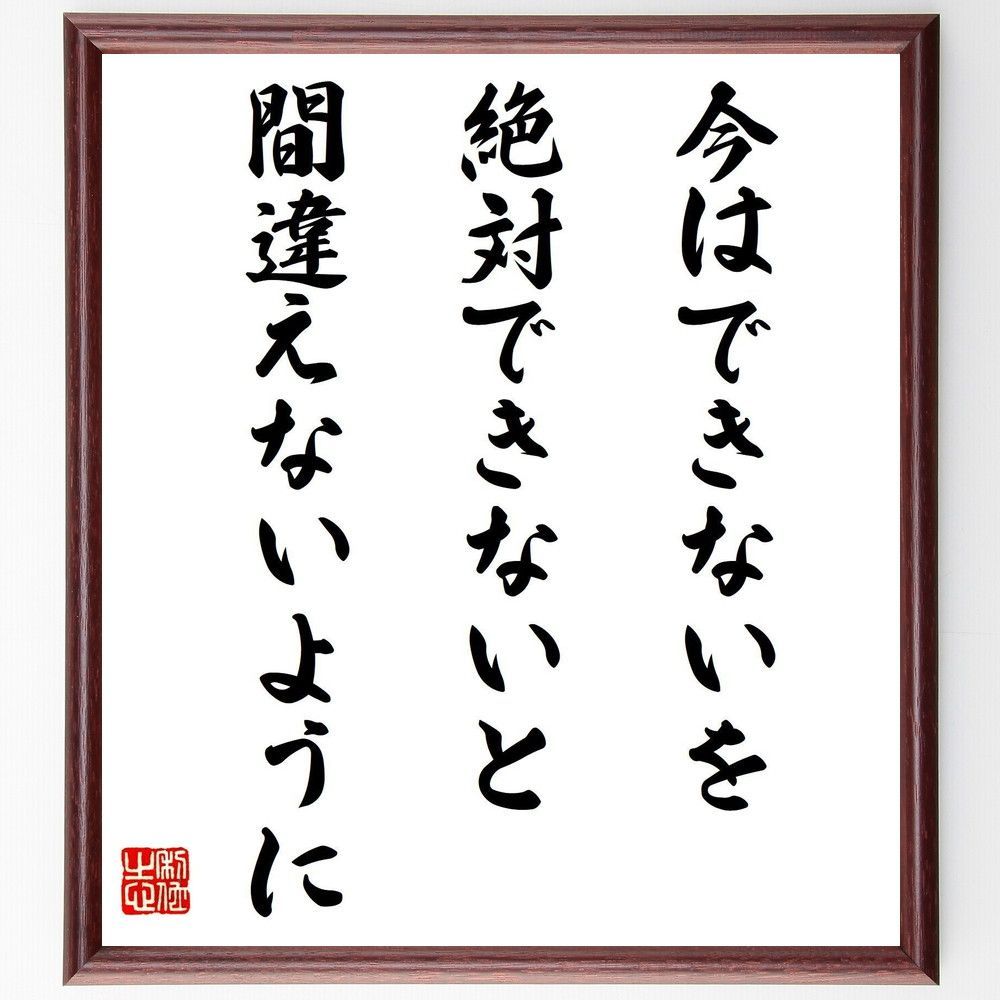 今はできないを
絶対できないと
間違えないように